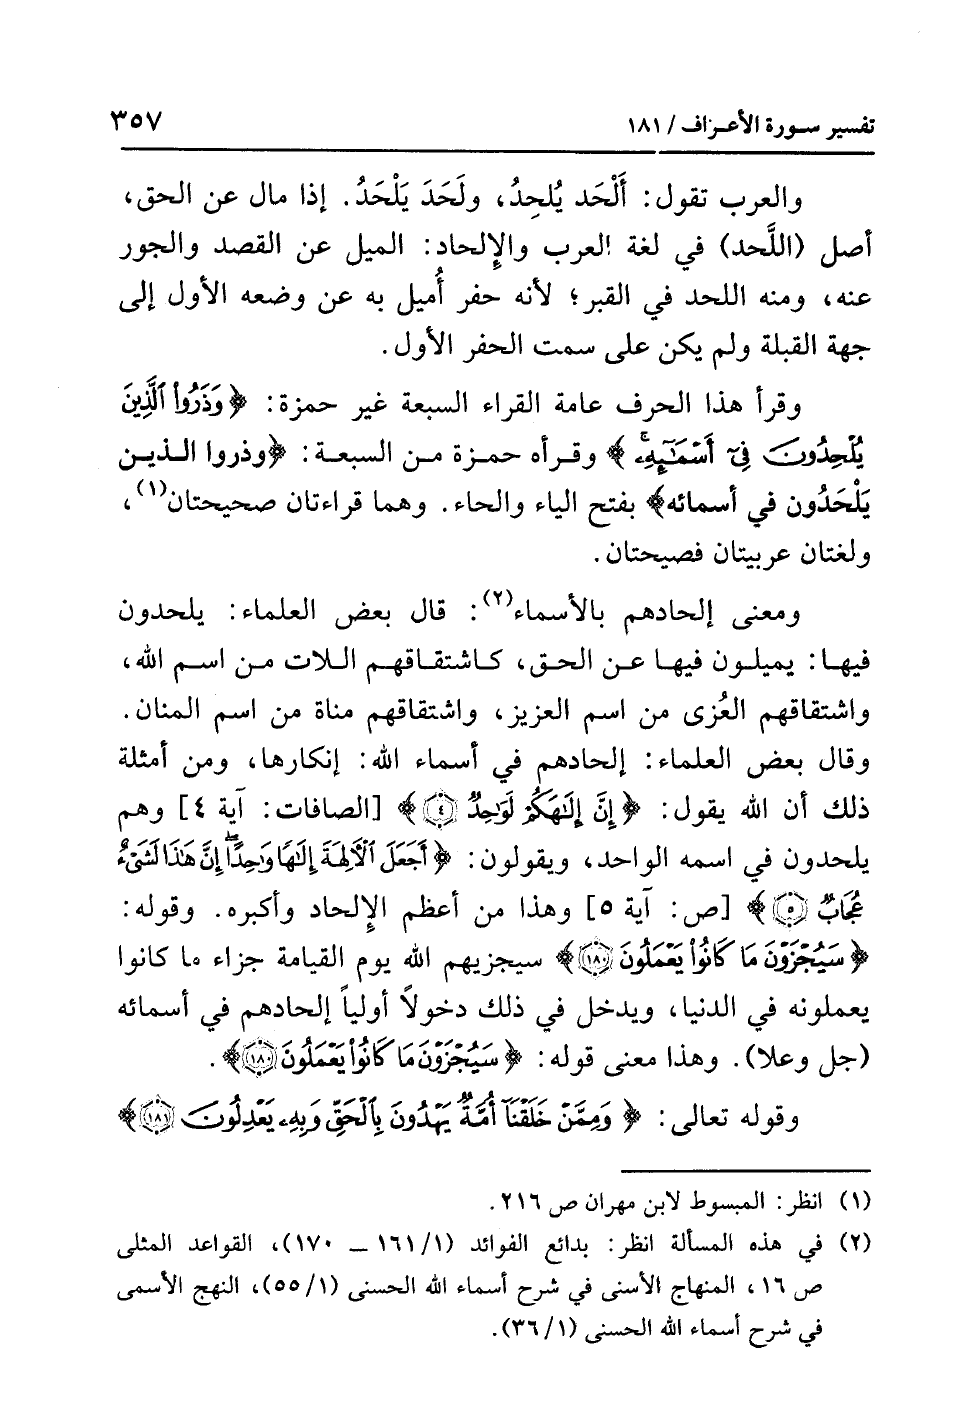 تفسير سورة الأعراف / ١٨١
٣٥٧
والعرب تقول: أَلْحَد يُلحِدُ، ولَحَدَ يَلْحَدُ. إذا مال عن الحق،
أصل (اللَّحد) في لغة العرب والإلحاد: الميل عن القصد والجور
عنه، ومنه اللحد في القبر؛ لأنه حفر أُميل به عن وضعه الأول إلى
جهة القبلة ولم يكن على سمت الحفر الأول.
وقرأ هذا الحرف عامة القراء السبعة غير حمزة: ﴿وَذَرُواْ ٱلَّذِينَ
يُلْحِدُونَ فِىٓ أَسْمَٰٓئِهِۦۚ﴾ وقرأه حمزة من السبعة: ﴿وذروا الذين
يَلْحَدُون في أسمائه﴾ بفتح الياء والحاء. وهما قراءتان صحيحتان(١)،
ولغتان عربيتان فصيحتان.
ومعنى إلحادهم بالأسماء(٢): قال بعض العلماء: يلحدون
فيها: يميلون فيها عن الحق، كاشتقاقهم اللات من اسم الله،
واشتقاقهم العُزى من اسم العزيز، واشتقاقهم مناة من اسم المنان.
وقال بعض العلماء: إلحادهم في أسماء الله: إنكارها، ومن أمثلة
ذلك أن الله يقول: ﴿إِنَّ إِلَٰهَكُمْ لَوَٰحِدٌ ٤﴾ [الصافات: آية ٤] وهم
يلحدون في اسمه الواحد، ويقولون: ﴿أَجَعَلَ ٱلْآلِهَةَ إِلَٰهًا وَٰحِدًا ۖ إِنَّ هَٰذَا لَشَىْءٌ
عُجَابٌ ٥﴾ [ص: آية ٥] وهذا من أعظم الإلحاد وأكبره. وقوله:
﴿سَيُجْزَوْنَ مَا كَانُواْ يَعْمَلُونَ ١٨٠﴾ سيجزيهم الله يوم القيامة جزاء ما كانوا
يعملونه في الدنيا، ويدخل في ذلك دخولاً أولياً إلحادهم في أسمائه
(جل وعلا). وهذا معنى قوله: ﴿سَيُجْزَوْنَ مَا كَانُواْ يَعْمَلُونَ ١٨٠﴾.
وقوله تعالى: ﴿وَمِمَّنْ خَلَقْنَآ أُمَّةٌ يَهْدُونَ بِٱلْحَقِّ وَبِهِۦ يَعْدِلُونَ ١٨١﴾
(١) انظر: المبسوط لابن مهران ص ٢١٦.
(٢) في هذه المسألة انظر: بدائع الفوائد (١/١٦١ ــ ١٧٠)، القواعد المثلى
ص ١٦، المنهاج الأسنى في شرح أسماء الله الحسنى (١/٥٥)، النهج الأسمى
في شرح أسماء الله الحسنى (١/٣٦).